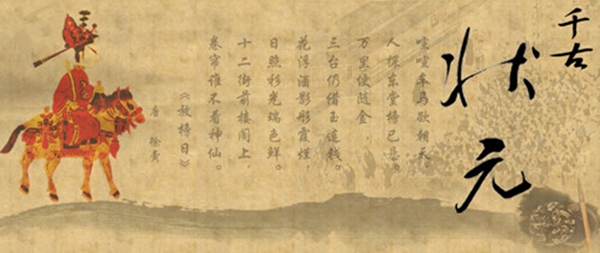 千古
状元
喧喧车马欲朝天
人探东堂榜已悬。
万里便随金，
三台仍借玉连钱。
花浮酒影彤霞烂，
日照衫光瑞色鲜。
十二街前楼阁上，
卷帘谁不看神仙。
《放榜日》
唐 徐夤